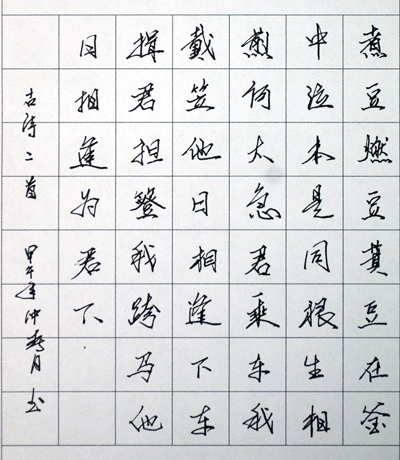 煮豆燃豆萁豆在釜
中泣本是同根生相
煎何太急君乘车我
戴笠他日相逢下车
揖君担簦我跨马他
日相逢为君下
古诗二首 甲午年仲春月 书